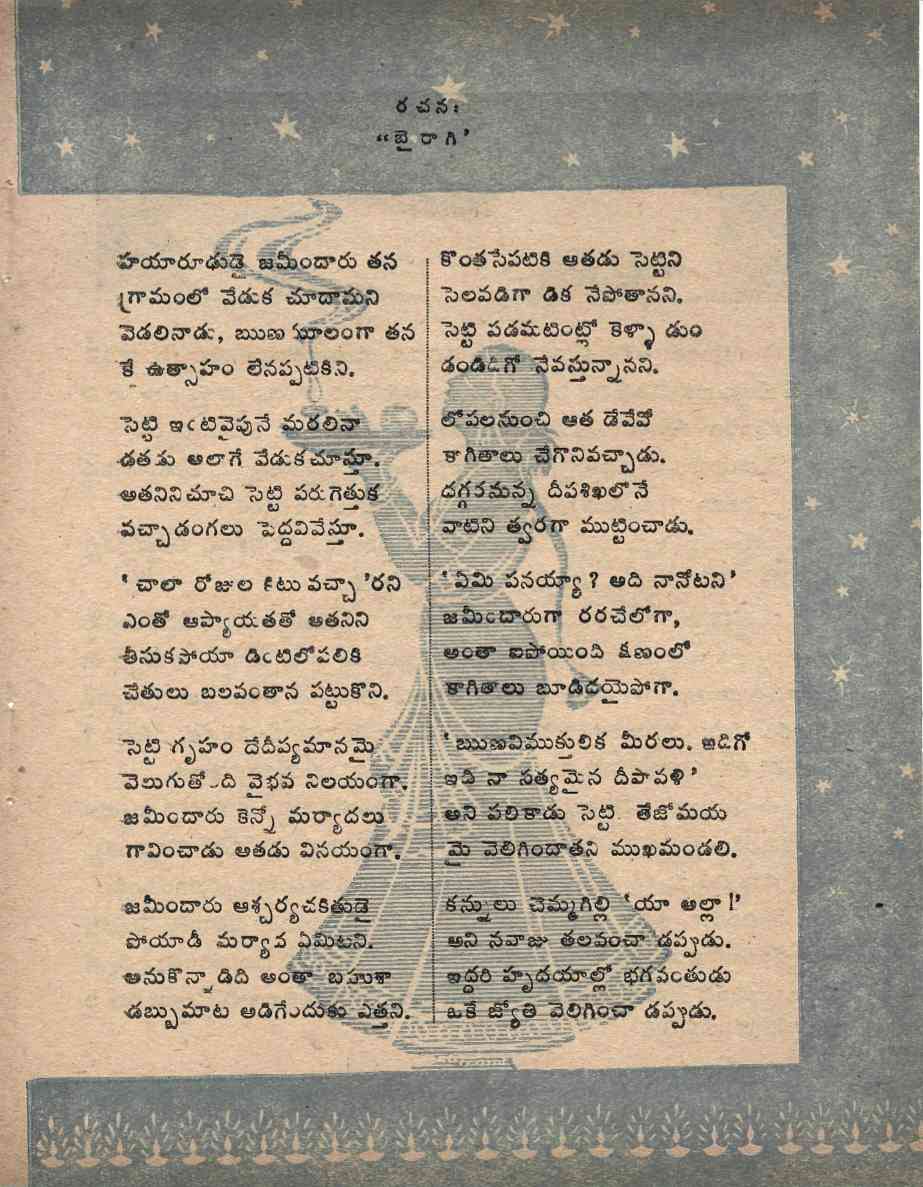 రచన:
“బైరాగి’
హయారూఢుడై జమీందారు తన
గ్రామంలో వేడుక చూదామని
వెడలినాడు, ఋణ మూలంగా తన
కే ఉత్సాహం లేనప్పటికిని.
సెట్టి ఇంటివైపునే మరలినా
డతడు అలాగే వేడుకచూస్తూ.
అతనినిచూచి సెట్టి పరుగెత్తుక
వచ్చాడంగలు పెద్దవివేస్తూ.
‘చాలా రోజుల కిటు వచ్చా’రని
ఎంతో ఆప్యాయతతో అతనిని
తీసుకపోయా డింటిలోపలికి
చేతులు బలవంతాన పట్టుకొని.
సెట్టి గృహం దేదీప్యమానమై
వెలుగుతోంది వైభవ నిలయంగా.
జమీందారు కెన్నో మర్యాదలు
గావించాడు అతడు వినయంగా.
జమీందారు ఆశ్చర్యచకితుడై
పోయాడీ మర్యాద ఏమిటని.
అనుకొన్నాడిది అంతా బహుశా
డబ్బుమాట అడిగేందుకు ఎత్తని.
కొంతసేపటికి ఆతడు సెట్టిని
సెలవడిగా డిక నేపోతానని.
సెట్టి పడమటింట్లో కెళ్ళాడుం
డండిదిగో నేవస్తున్నానని.
లోపలనుంచి ఆత డేవేవో
కాగితాలు చేగొనివచ్చాడు.
దగ్గరనున్న దీపశిఖలోనే
వాటిని త్వరగా ముట్టించాడు.
‘ఏమి పనయ్యా? అది నానోటని’
జమీందారుగా రరచేలోగా,
అంతా ఐపోయింది క్షణంలో
కాగితాలు బూడిదయైపోగా.
‘ఋణవిముక్తులిక మీరలు. అడిగో
ఇది నా సత్యమైన దీపావళి’
అని పలికాడు సెట్టి. తేజోమయ
మై వెలిగిందాతని ముఖమండలి.
కన్నులు చెమ్మగిల్లి ‘యా అల్లా!’
అని నవాజు తలవంచా డప్పుడు.
ఇద్దరి హృదయాల్లో భగవంతుడు
ఒకే జ్యోతి వెలిగించా డప్పుడు.